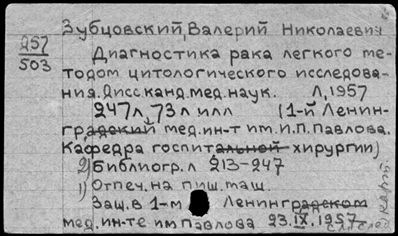 Зубцовский, Валерий Николаевич
Д57
503
Диагностика рака легкого ме-
тодом цитологического исследова-
ния. Дисс. канд. мед. наук. Л, 1957
247 л, 73 л илл (1-й Ленин-
градский мед. ин-т им. И.П. Павлова.
Кафедра госпитальной хирургии)
2) Библиогр. л 213-247
1) Отпеч. на пиш. маш.
Защ. в 1-м Ленинградском
мед. ин-те им Павлова 23.IX.1957